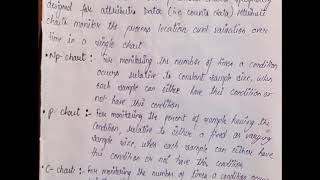 designed for attributes Data (i.e counts data) Attribute
charts monitor the process location and variation over
time in a single chart
• Np-chart :- For monitoring the number of times a condition
occurs relative to constant sample size, when
each sample can either have this condition or
not have this condition
• P-chart :- For monitoring the percent of sample having the
condition, relative to either a fixed or varying
sample size, when each sample can either have
this condition or not have this condition
• C-chart :- For monitoring the number of times a condition occurs